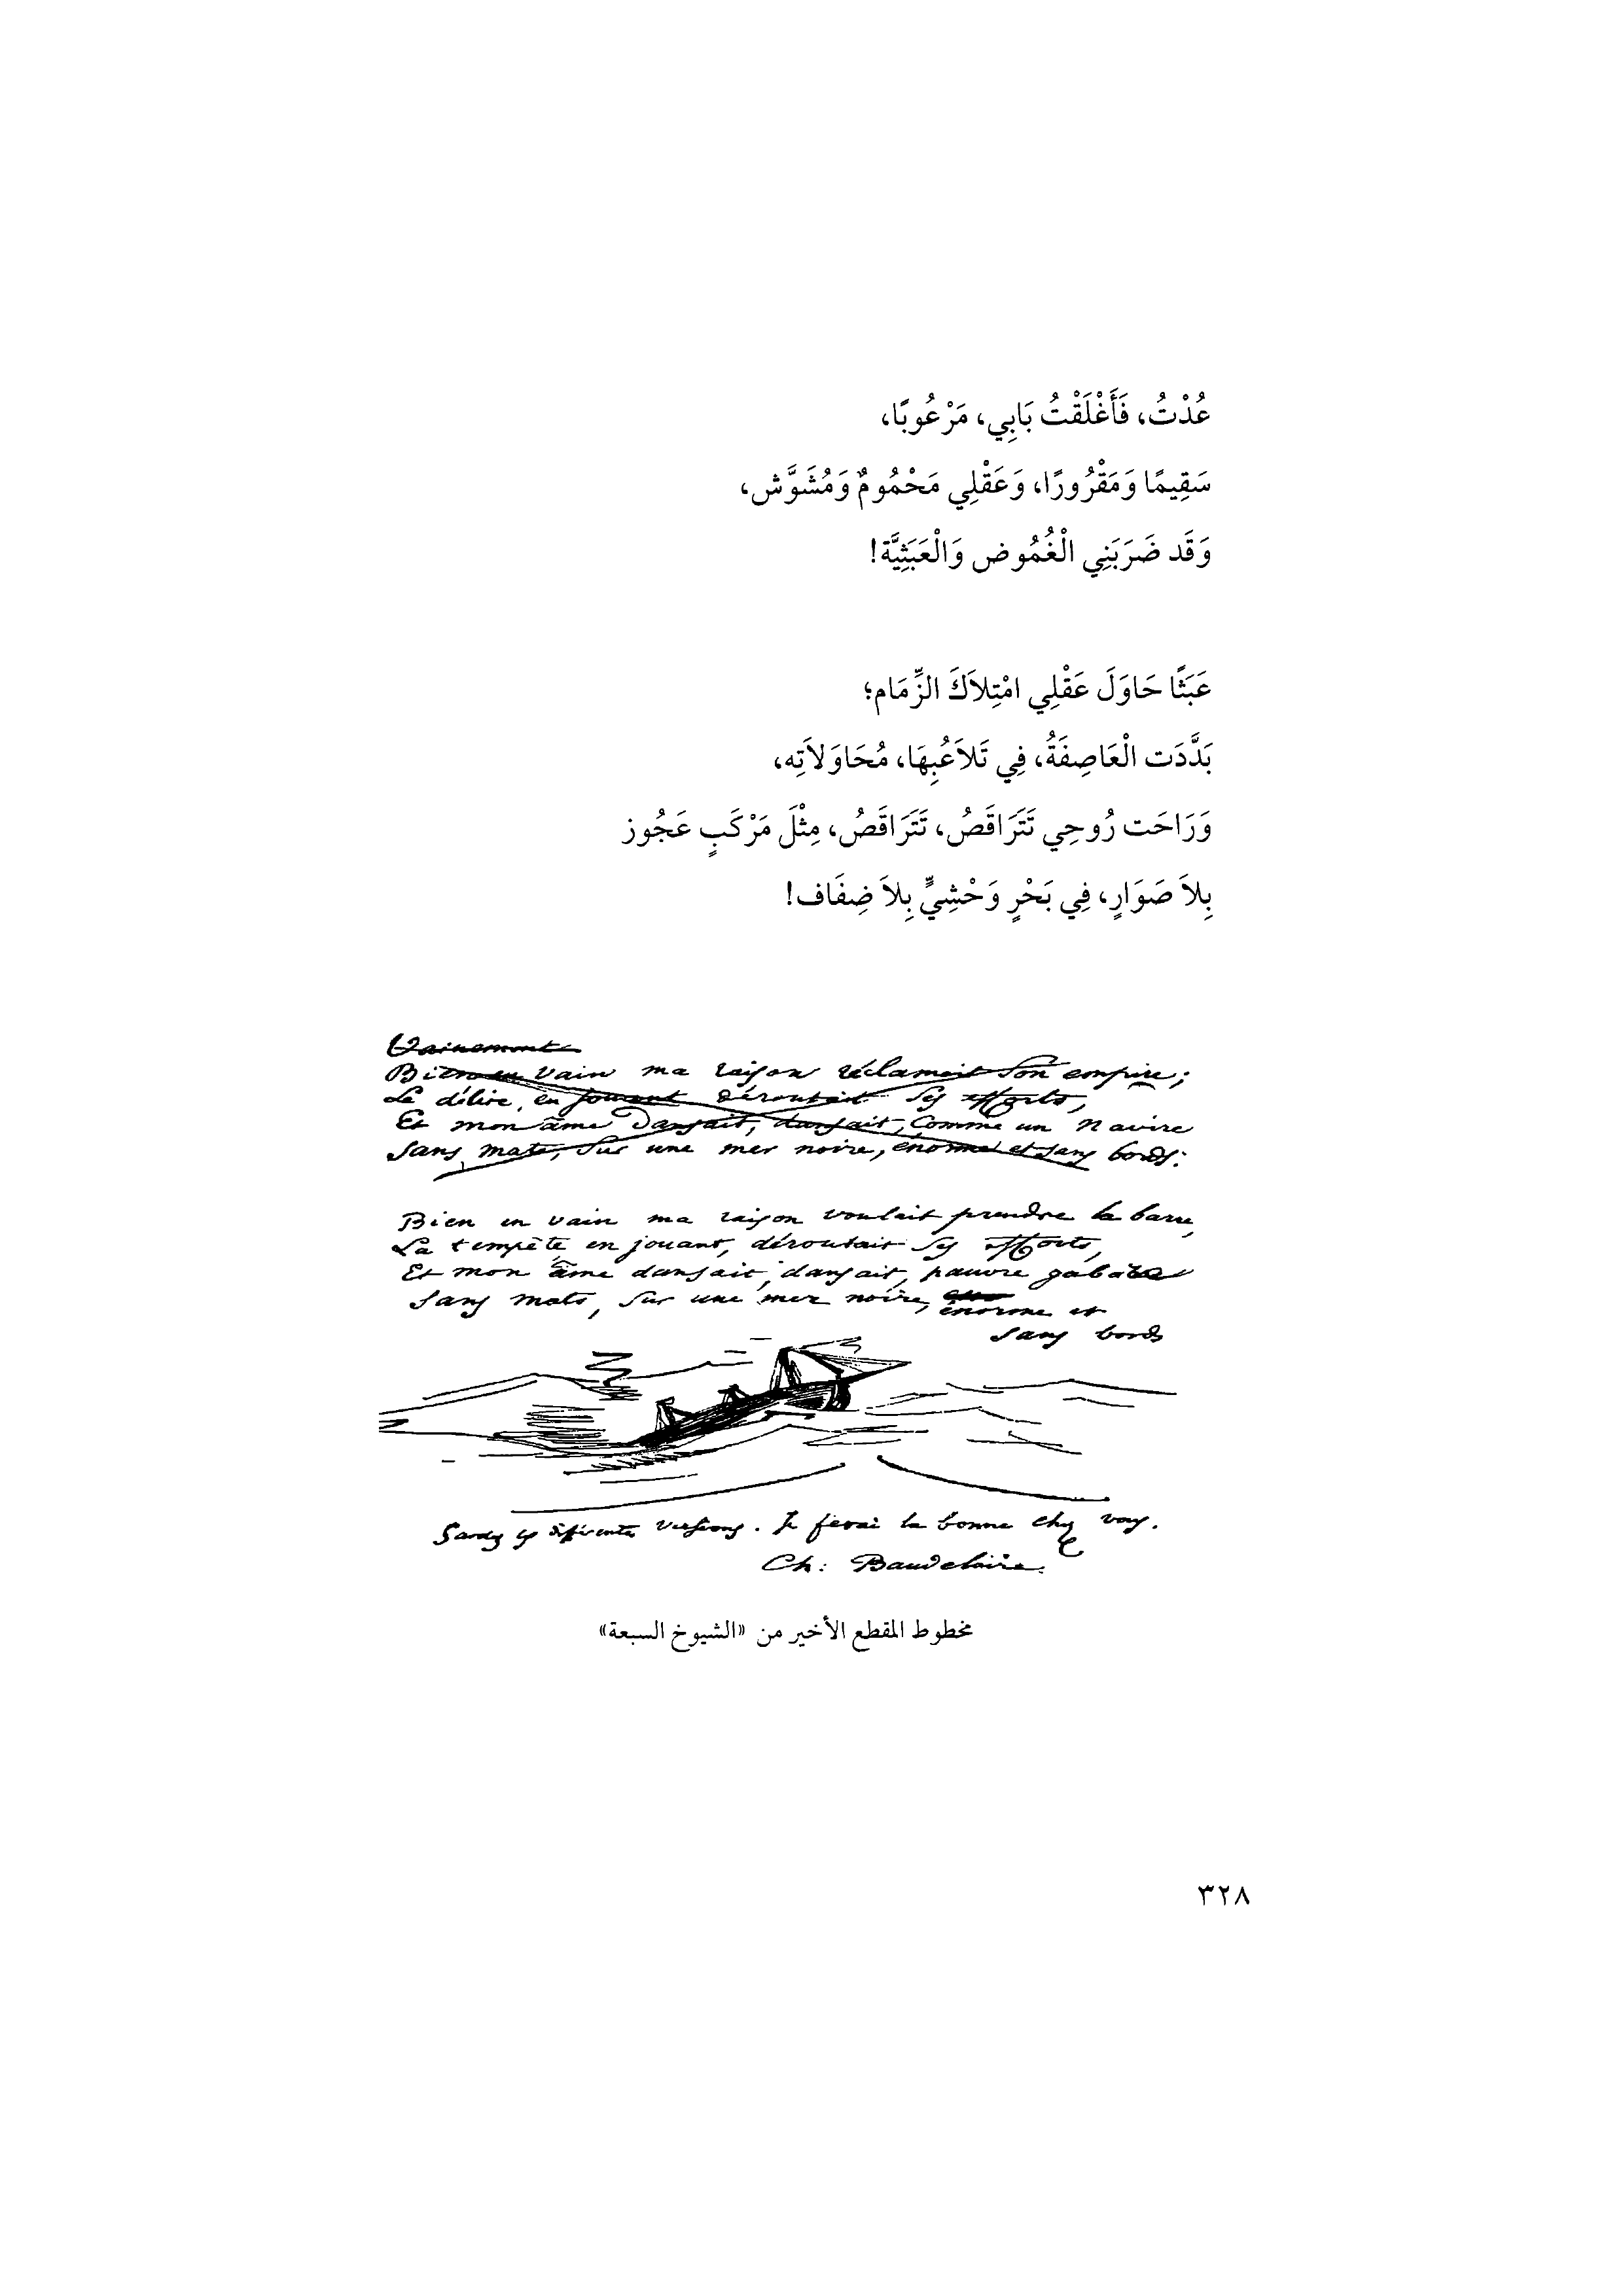 عُدْتُ، فَأَغْلَقْتُ بَابِي، مَرْعُوبًا،
سَقِيمًا وَمَقْرُورًا، وَعَقْلِي مَحْمُومٌ وَمُشَوَّش،
وَقَد ضَرَبَنِي الْغُمُوض وَالْعَبَثِيَّة!
عَبَثًا حَاوَلَ عَقْلِي امْتِلاَكَ الزِّمَام؛
بَدَّدَت الْعَاصِفَةُ، فِي تَلاَعُبِهَا، مُحَاوَلاَتِه،
وَرَاحَت رُوحِي تَتَرَاقَصُ، تَتَرَاقَصُ، مِثْلَ مَرْكَبٍ عَجُوز
بِلاَ صَوَارٍ، فِي بَحْرٍ وَحْشِيٍّ بِلاَ ضِفَاف!
Vainement
Bien en vain ma raison réclamait son empire;
Le délire, en jouant déroutait ses efforts,
Et mon âme dansait, dansait, comme un navire
Sans mats, sur une mer noire, énorme et sans bords.
Bien en vain ma raison voulait prendre la barre,
La tempête en jouant, déroutait ses efforts,
Et mon âme dansait, dansait, pauvre gabare
Sans mats, sur une mer noire, énorme et
sans bords
Gardez ces différentes versions. Je ferai la bonne chez vous.
Ch: Baudelaire.
مخطوط المقطع الأخير من «الشيوخ السبعة»
٣٢٨